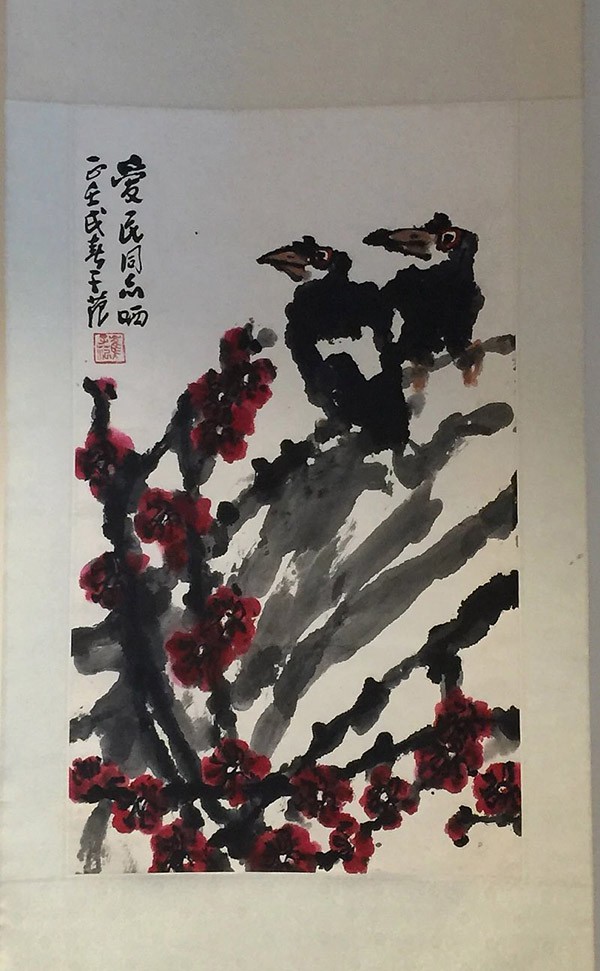 愛民同志哂
正壬戌春子范